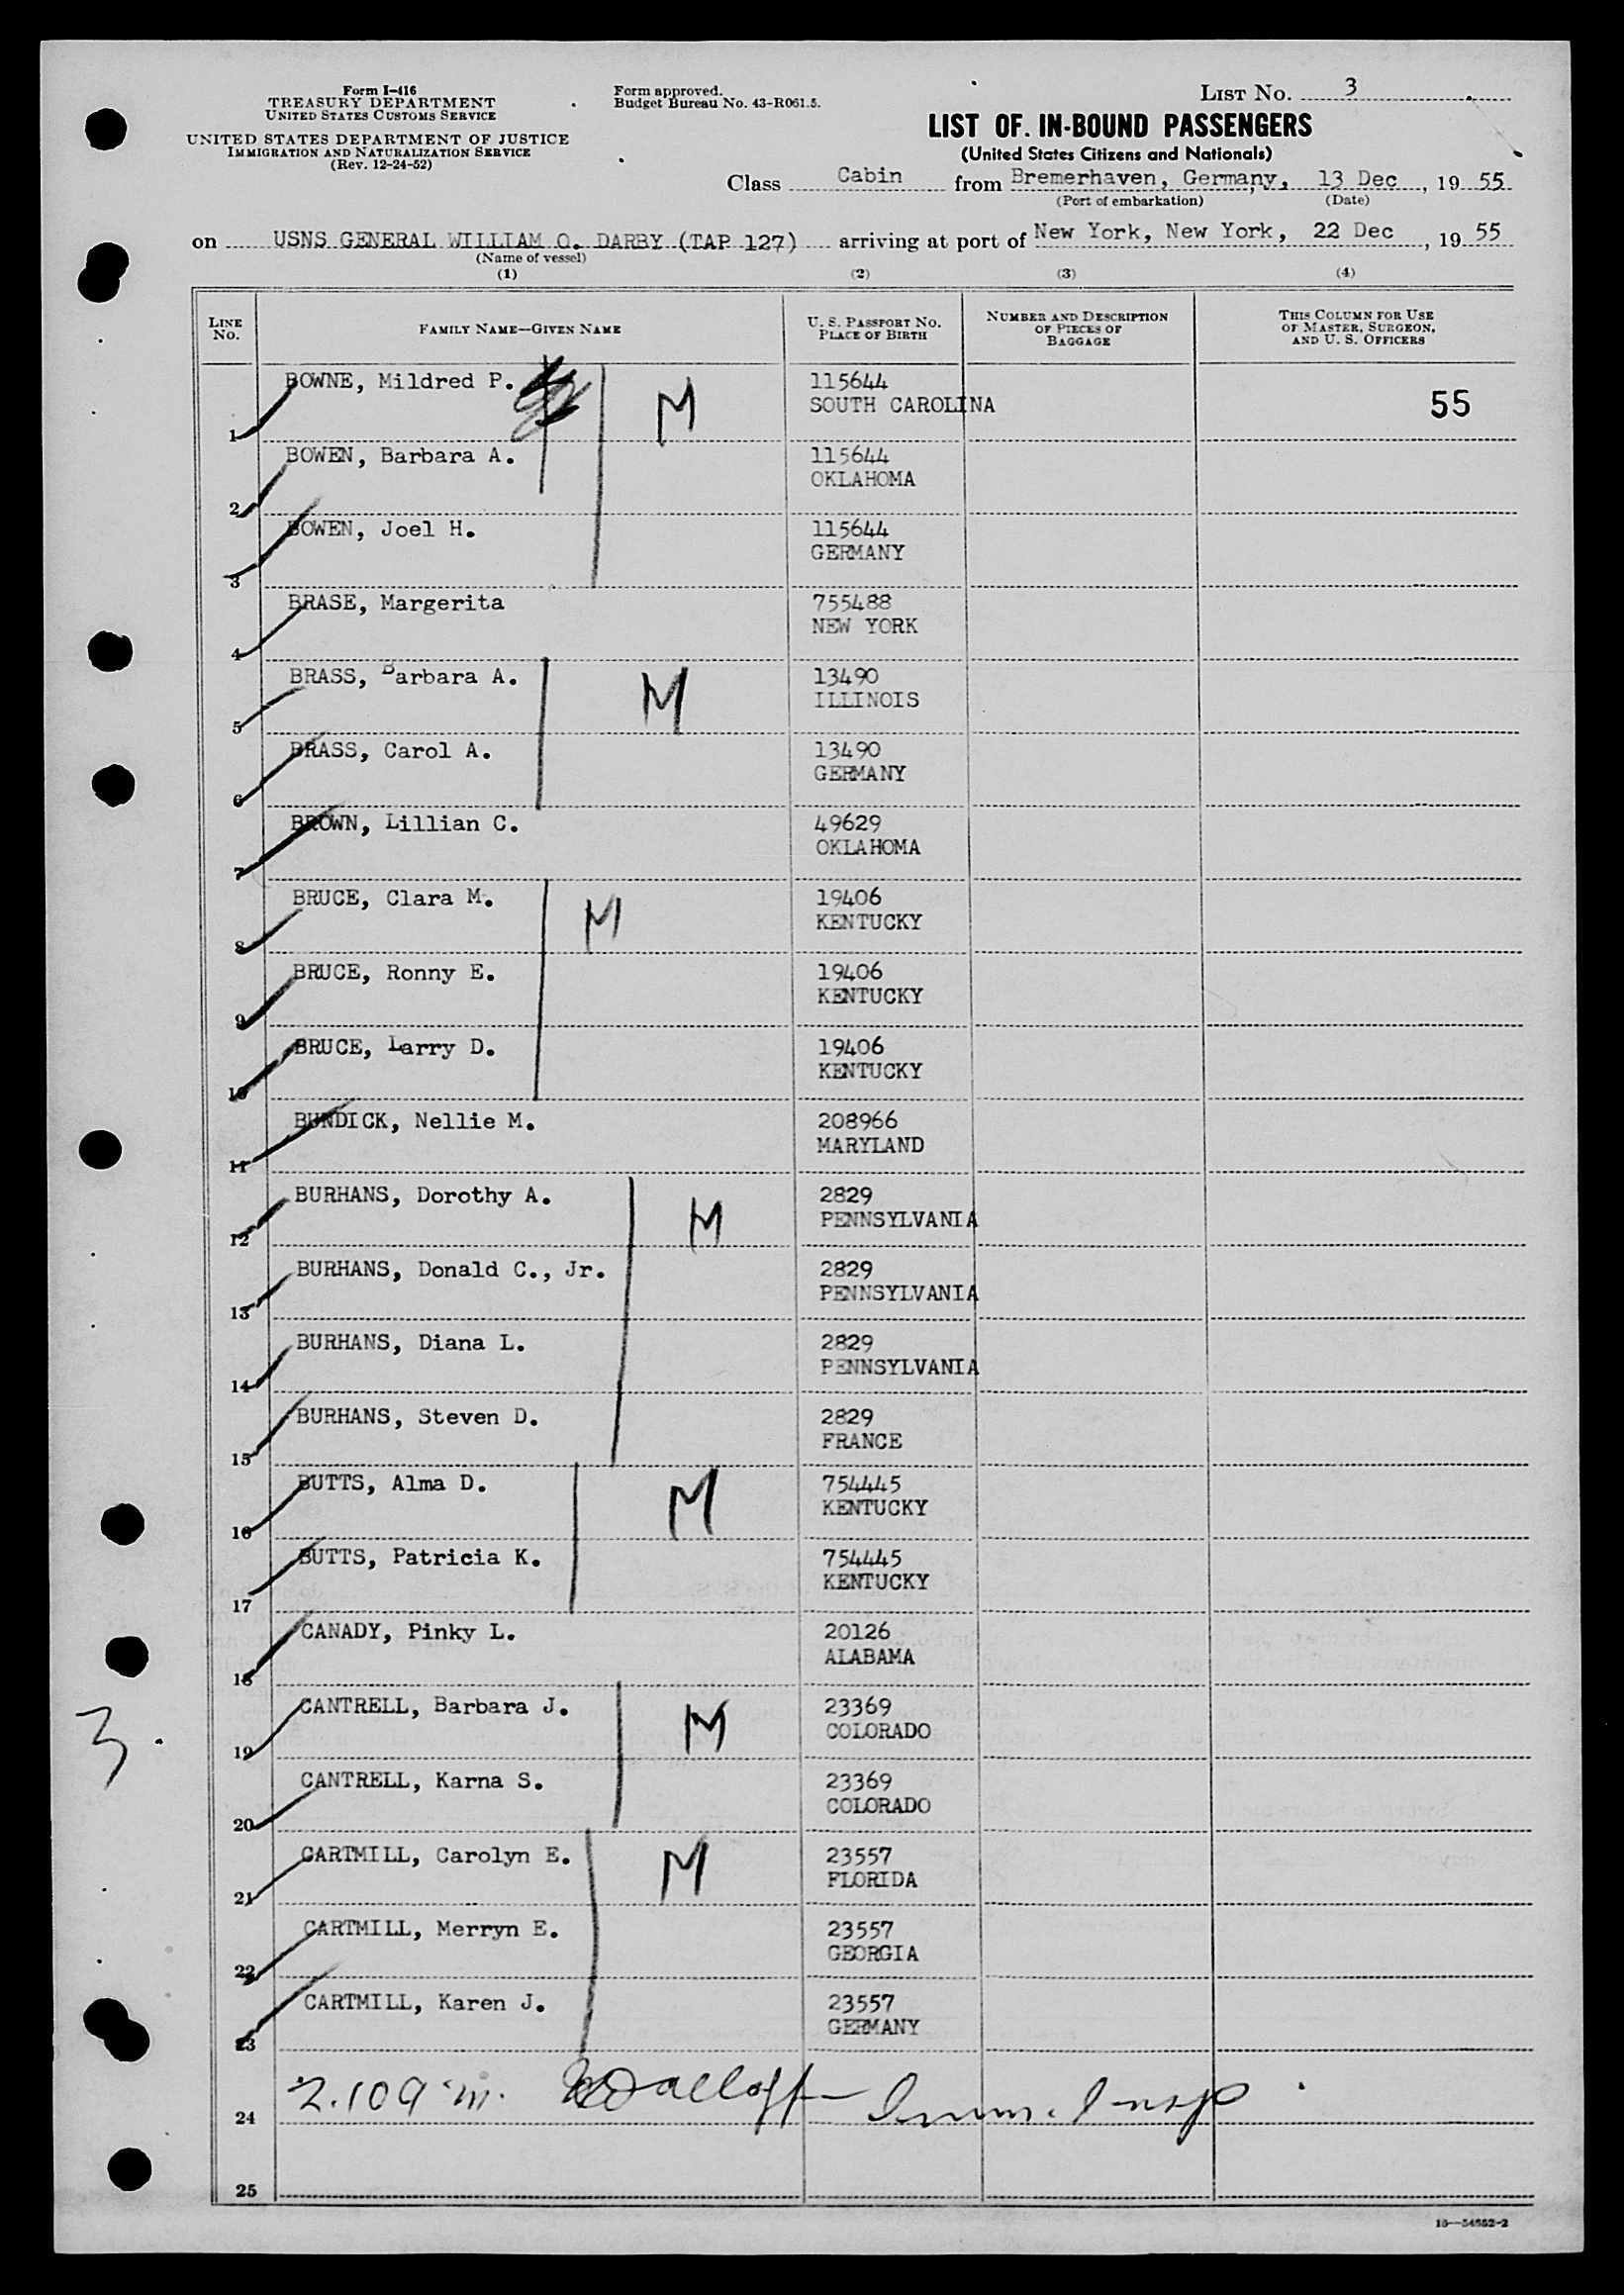 Form I-416
TREASURY DEPARTMENT
UNITED STATES CUSTOMS SERVICE
UNITED STATES DEPARTMENT OF JUSTICE
IMMIGRATION AND NATURALIZATION SERVICE
(Rev. 12-24-52)
Form approved.
Budget Bureau No. 43-R061.5.
LIST NO. 3
LIST OF IN-BOUND PASSENGERS
(United States Citizens and Nationals)
Class Cabin from Bremerhaven, Germany, 13 Dec, 1955
(Port of embarkation) (Date)
on USNS GENERAL WILLIAM O. DARBY (TAP 127) arriving at port of New York, New York, 22 Dec, 1955
(Name of vessel)
(1) (2) (3) (4)
LINE NO. FAMILY NAME—GIVEN NAME U. S. PASSPORT NO. PLACE OF BIRTH NUMBER AND DESCRIPTION OF PIECES OF BAGGAGE THIS COLUMN FOR USE OF MASTER, SURGEON, AND U. S. OFFICERS
BOWNE, Mildred P. M 115644
1 SOUTH CAROLINA 55
BOWEN, Barbara A. 115644
2 OKLAHOMA
BOWEN, Joel H. 115644
3 GERMANY
BRASE, Margerita 755488
4 NEW YORK
BRASS, Barbara A. M 13490
5 ILLINOIS
BRASS, Carol A. 13490
6 GERMANY
BROWN, Lillian C. 49629
7 OKLAHOMA
BRUCE, Clara M. M 19406
8 KENTUCKY
BRUCE, Ronny E. 19406
9 KENTUCKY
BRUCE, Larry D. 19406
10 KENTUCKY
BUNDICK, Nellie M. 208966
11 MARYLAND
BURHANS, Dorothy A. M 2829
12 PENNSYLVANIA
BURHANS, Donald C., Jr. 2829
13 PENNSYLVANIA
BURHANS, Diana L. 2829
14 PENNSYLVANIA
BURHANS, Steven D. 2829
15 FRANCE
BUTTS, Alma D. M 754445
16 KENTUCKY
BUTTS, Patricia K. 754445
17 KENTUCKY
CANADY, Pinky L. 20126
18 ALABAMA
CANTRELL, Barbara J. M 23369
3 19 COLORADO
CANTRELL, Karna S. 23369
20 COLORADO
CARTMILL, Carolyn E. M 23557
21 FLORIDA
CARTMILL, Merryn E. 23557
22 GEORGIA
CARTMILL, Karen J. 23557
23 GERMANY
24 Imm. Insp
25